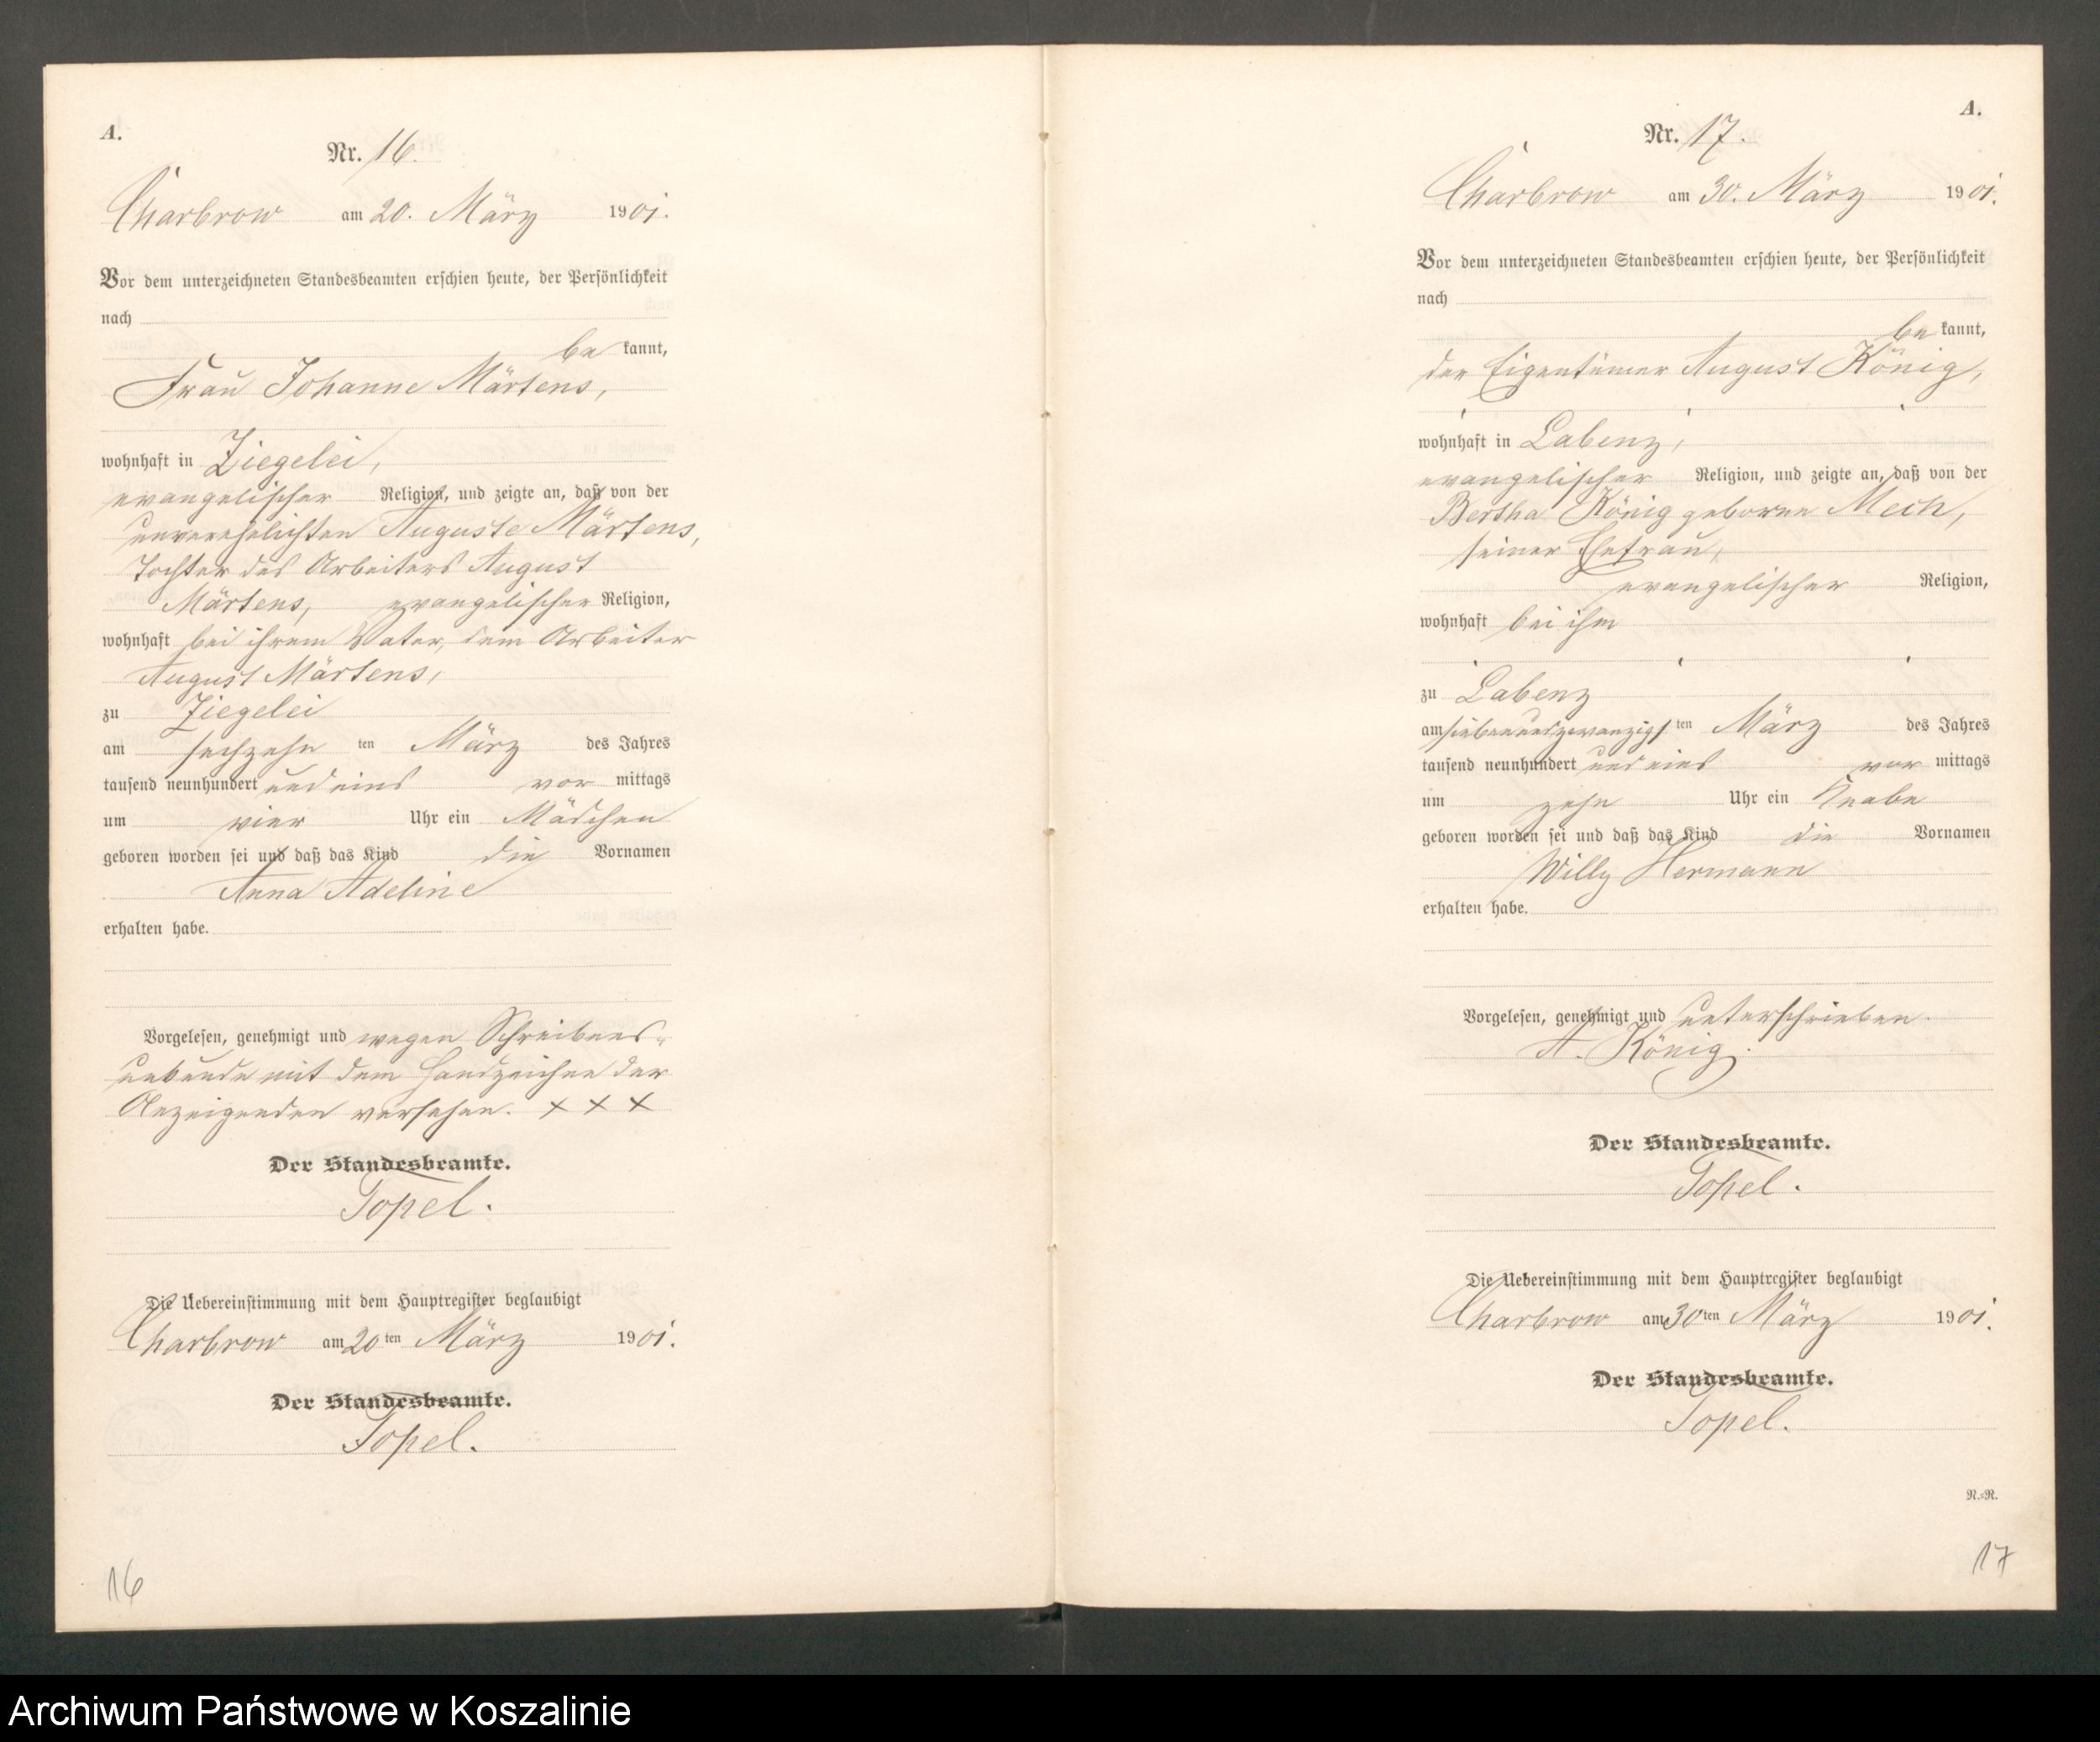 A.
Nr. 16.
Charbrow am 20. März 1901.
Vor dem unterzeichneten Standesbeamten erschien heute, der Persönlichkeit
nach
be kannt,
Frau Johanne Märtens,
wohnhaft in Ziegelei,
evangelischer Religion, und zeigte an, daß von der
unverehelichten Auguste Märtens,
Tochter des Arbeiters August
Märtens, evangelischer Religion,
wohnhaft bei ihrem Vater, dem Arbeiter
August Märtens,
zu Ziegelei
am sechzehn ten März des Jahres
tausend neunhundert und eins vor mittags
um vier Uhr ein Mädchen
geboren worden sei und daß das Kind die Vornamen
Anna Adeline
erhalten habe.
Vorgelesen, genehmigt und wegen Schreibens-
unkunde mit dem Handzeichen der
Anzeigenden versehen. x x x
Der Standesbeamte.
Topel.
Die Uebereinstimmung mit dem Hauptregister beglaubigt
Charbrow am 20 ten März 1901.
Der Standesbeamte.
Topel.
16
A.
Nr. 17.
Charbrow am 30. März 1901.
Vor dem unterzeichneten Standesbeamten erschien heute, der Persönlichkeit
nach
be kannt,
der Eigentümer August König,
wohnhaft in Labenz,
evangelischer Religion, und zeigte an, daß von der
Bertha König geborne Mech,
seiner Ehefrau,
evangelischer Religion,
wohnhaft bei ihm
zu Labenz
am siebenundzwanzigs ten März des Jahres
tausend neunhundert und eins vor mittags
um zehn Uhr ein Knabe
geboren worden sei und daß das Kind die Vornamen
Willy Hermann
erhalten habe.
Vorgelesen, genehmigt und unterschrieben.
A. König.
Der Standesbeamte.
Topel.
Die Uebereinstimmung mit dem Hauptregister beglaubigt
Charbrow am 30 ten März 1901.
Der Standesbeamte.
Topel.
N.=R.
17
Archiwum Państwowe w Koszalinie